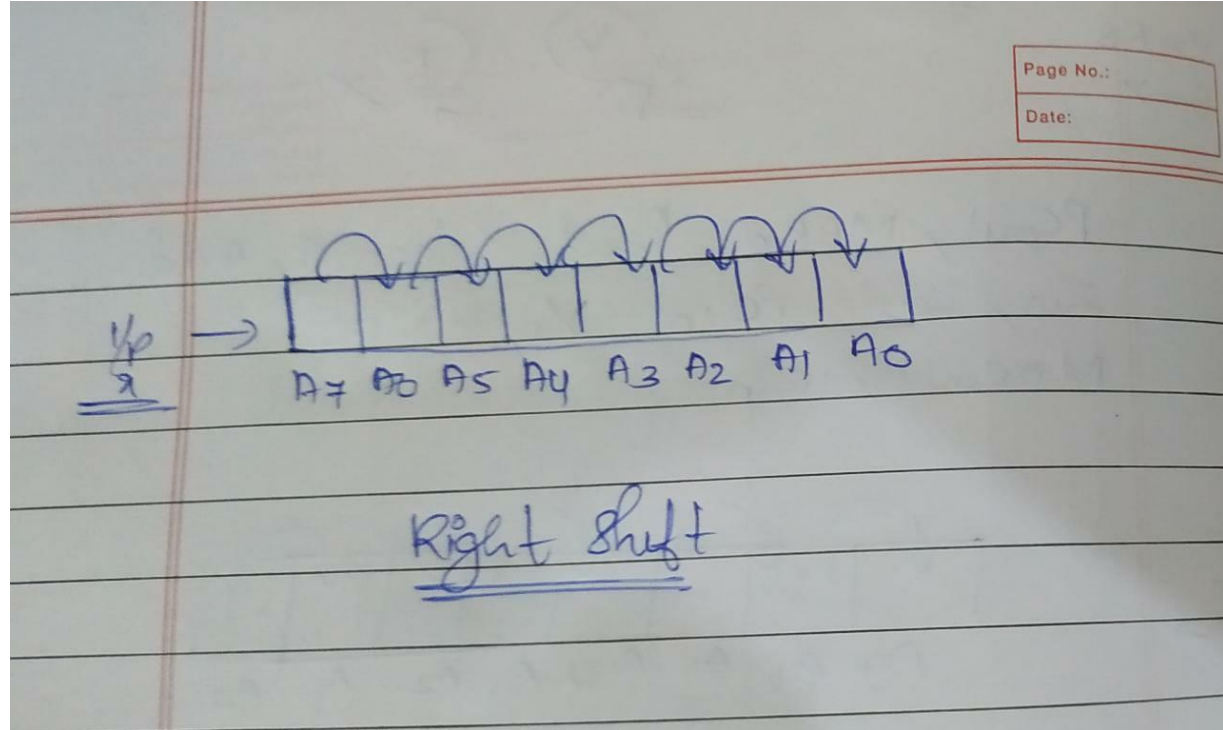 Page No.:
Date:
I/p
A7 A6 A5 A4 A3 A2 A1 A0
Right Shift